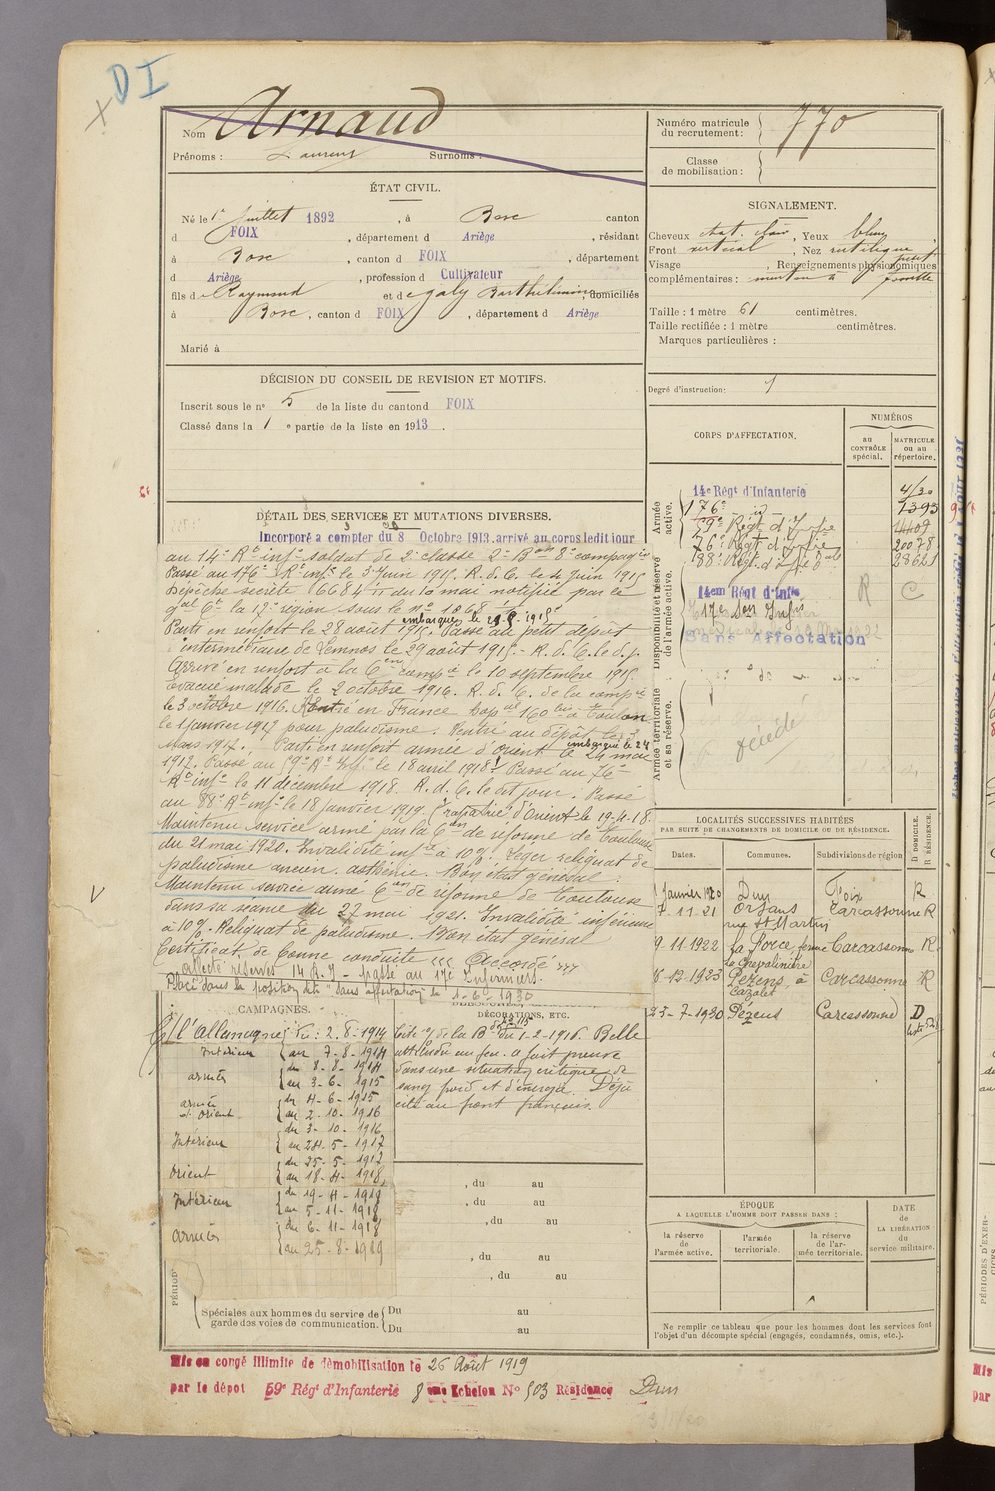 DI
Nom Arnaud
Prénoms : Laurent Surnoms :
Numéro matricule du recrutement : 770
Classe de mobilisation :
ÉTAT CIVIL.
Né le 1er juillet 1892, à Bosc canton
d FOIX, département d Ariège, résidant
à Bosc, canton d FOIX, département
d Ariège, profession d Cultivateur
fils de Raymond et de Galy Barthélemine, domiciliés
à Bosc, canton d FOIX, département d Ariège
Marié à
SIGNALEMENT.
Cheveux chat. clair, Yeux bleus
Front vertical, Nez rectiligne
Visage , Renseignements physionomiques
complémentaires : menton à fossette
petit
Taille : 1 mètre 61 centimètres.
Taille rectifiée : 1 mètre centimètres.
Marques particulières :
Degré d'instruction :
DÉCISION DU CONSEIL DE REVISION ET MOTIFS.
Inscrit sous le n° 5 de la liste du canton d FOIX
Classé dans la 1e partie de la liste en 1913.
CORPS D'AFFECTATION.
NUMÉROS
au CONTRÔLE spécial.
MATRICULE ou au répertoire.
Armée active.
14e Régt d'Infanterie
176e - id -
1393
Régt d'Infie
76e Régt d'Infie
20078
88e Régt d'Infie
Disponibilité et réserve de l'armée active.
14em Régt d'Infie
17e Son Infirs
R C
Sans Affectation
Armée territoriale et sa réserve.
DÉTAIL DES SERVICES ET MUTATIONS DIVERSES.
Incorporé a compter du 8 Octobre 1913. arrivé au corps ledit jour
au 14e Rt infie soldat de 2e classe 2e Bon 8e compagnie
Passé au 176e Rt infie le 3 Juin 1915. R. d. C. le 4 Juin 1915
Dépêche secrète 16684 11 du 10 mai notifiée par le
gal Ct la 17e région sous le no 1868
embarqué le 29.8.1915
Parti en renfort le 28 août 1915. Passé au petit dépôt
intermédiaire de Lemnos le 29 août 1915. - R. d. C. le d. j.
Arrivé en renfort à la 6em compie le 10 septembre 1915.
Evacué malade le 2 octobre 1916. R. d. C. de la compie
le 3 octobre 1916. Rentré en France hopal 160 bis à Toulon
le 1 janvier 1917 pour paludisme. Rentré au dépôt le 3
mars 1917. Parti en renfort armée d'Orient le 24 mai
embarqué le 24
1917. Passé au Rt Infie le 18 avril 1918. Passé au 76e
Rt infie le 11 décembre 1918. R. d. C. le dit jour. Passé
au 88e Rt infie le 18 janvier 1919. (rapatrié d'Orient le 19.4.18.
Maintenu service armé par la Con de réforme de Toulouse
du 21 mai 1920. Invalidité infre à 10%. Léger reliquat de
paludisme ancien. asthénie. Bon état général.
Maintenu service armé Con de réforme de Toulouse
dans sa séance du 27 mai 1921. Invalidité inférieure
à 10%. Reliquat de paludisme. Bon état général
Certificat de bonne conduite <<< Accordé >>>
affecté réserves 14 R.I - passé au 17e Infirmiers.
Placé dans la position dite "Sans affectation" le 1-6-1930
LOCALITÉS SUCCESSIVES HABITÉES
PAR SUITE DE CHANGEMENTS DE DOMICILE OU DE RÉSIDENCE.
Dates. Communes. Subdivisions de région D DOMICILE. R RÉSIDENCE.
1 Janvier 1920 Dun Foix R
7-11-21 Orsans Carcassonne R
rue St Martin
9-11-1922 La Force ferme Carcassonne R
La Chevalinière
6-12-1923 Pezens, à Carcassonne R
Cazalet
25-7-1930 Pézens Carcassonne D
CAMPAGNES.
C/ l'Allemagne du : 2-8-1914
Intérieur au 7-8-1914
armée du 8-8-1914
au 3-6-1915
armée d'Orient du 4-6-1915
au 2-10-1916
Intérieur du 3-10-1916
au 24-5-1917
Orient du 25-5-1917
au 18-4-1918
Intérieur du 19-4-1918
au 5-11-1918
armées du 6-11-1918
au 25-8-1919
DÉCORATIONS, ETC.
Cité de la Be du 1-2-1916. Belle
attitude au feu. a fait preuve
dans une situation critique de
sang froid et d'énergie. Déjà
cité au front français.
, du au
, du au
, du au
, du au
, du au
Spéciales aux hommes du service de garde des voies de communication. Du au
Du au
ÉPOQUE
A LAQUELLE L'HOMME DOIT PASSER DANS :
la réserve de l'armée active.
l'armée territoriale.
la réserve de l'armée territoriale.
DATE de LA LIBÉRATION du service militaire.
Ne remplir ce tableau que pour les hommes dont les services font
l'objet d'un décompte spécial (engagés, condamnés, omis, etc.).
Mis en congé illimité de démobilisation le 26 Août 1919
par le dépot 59e Régt d'Infanterie 8eme Echelon No 503 Résidence Dun
PÉRIODES D'EXERCICES
Mis
par